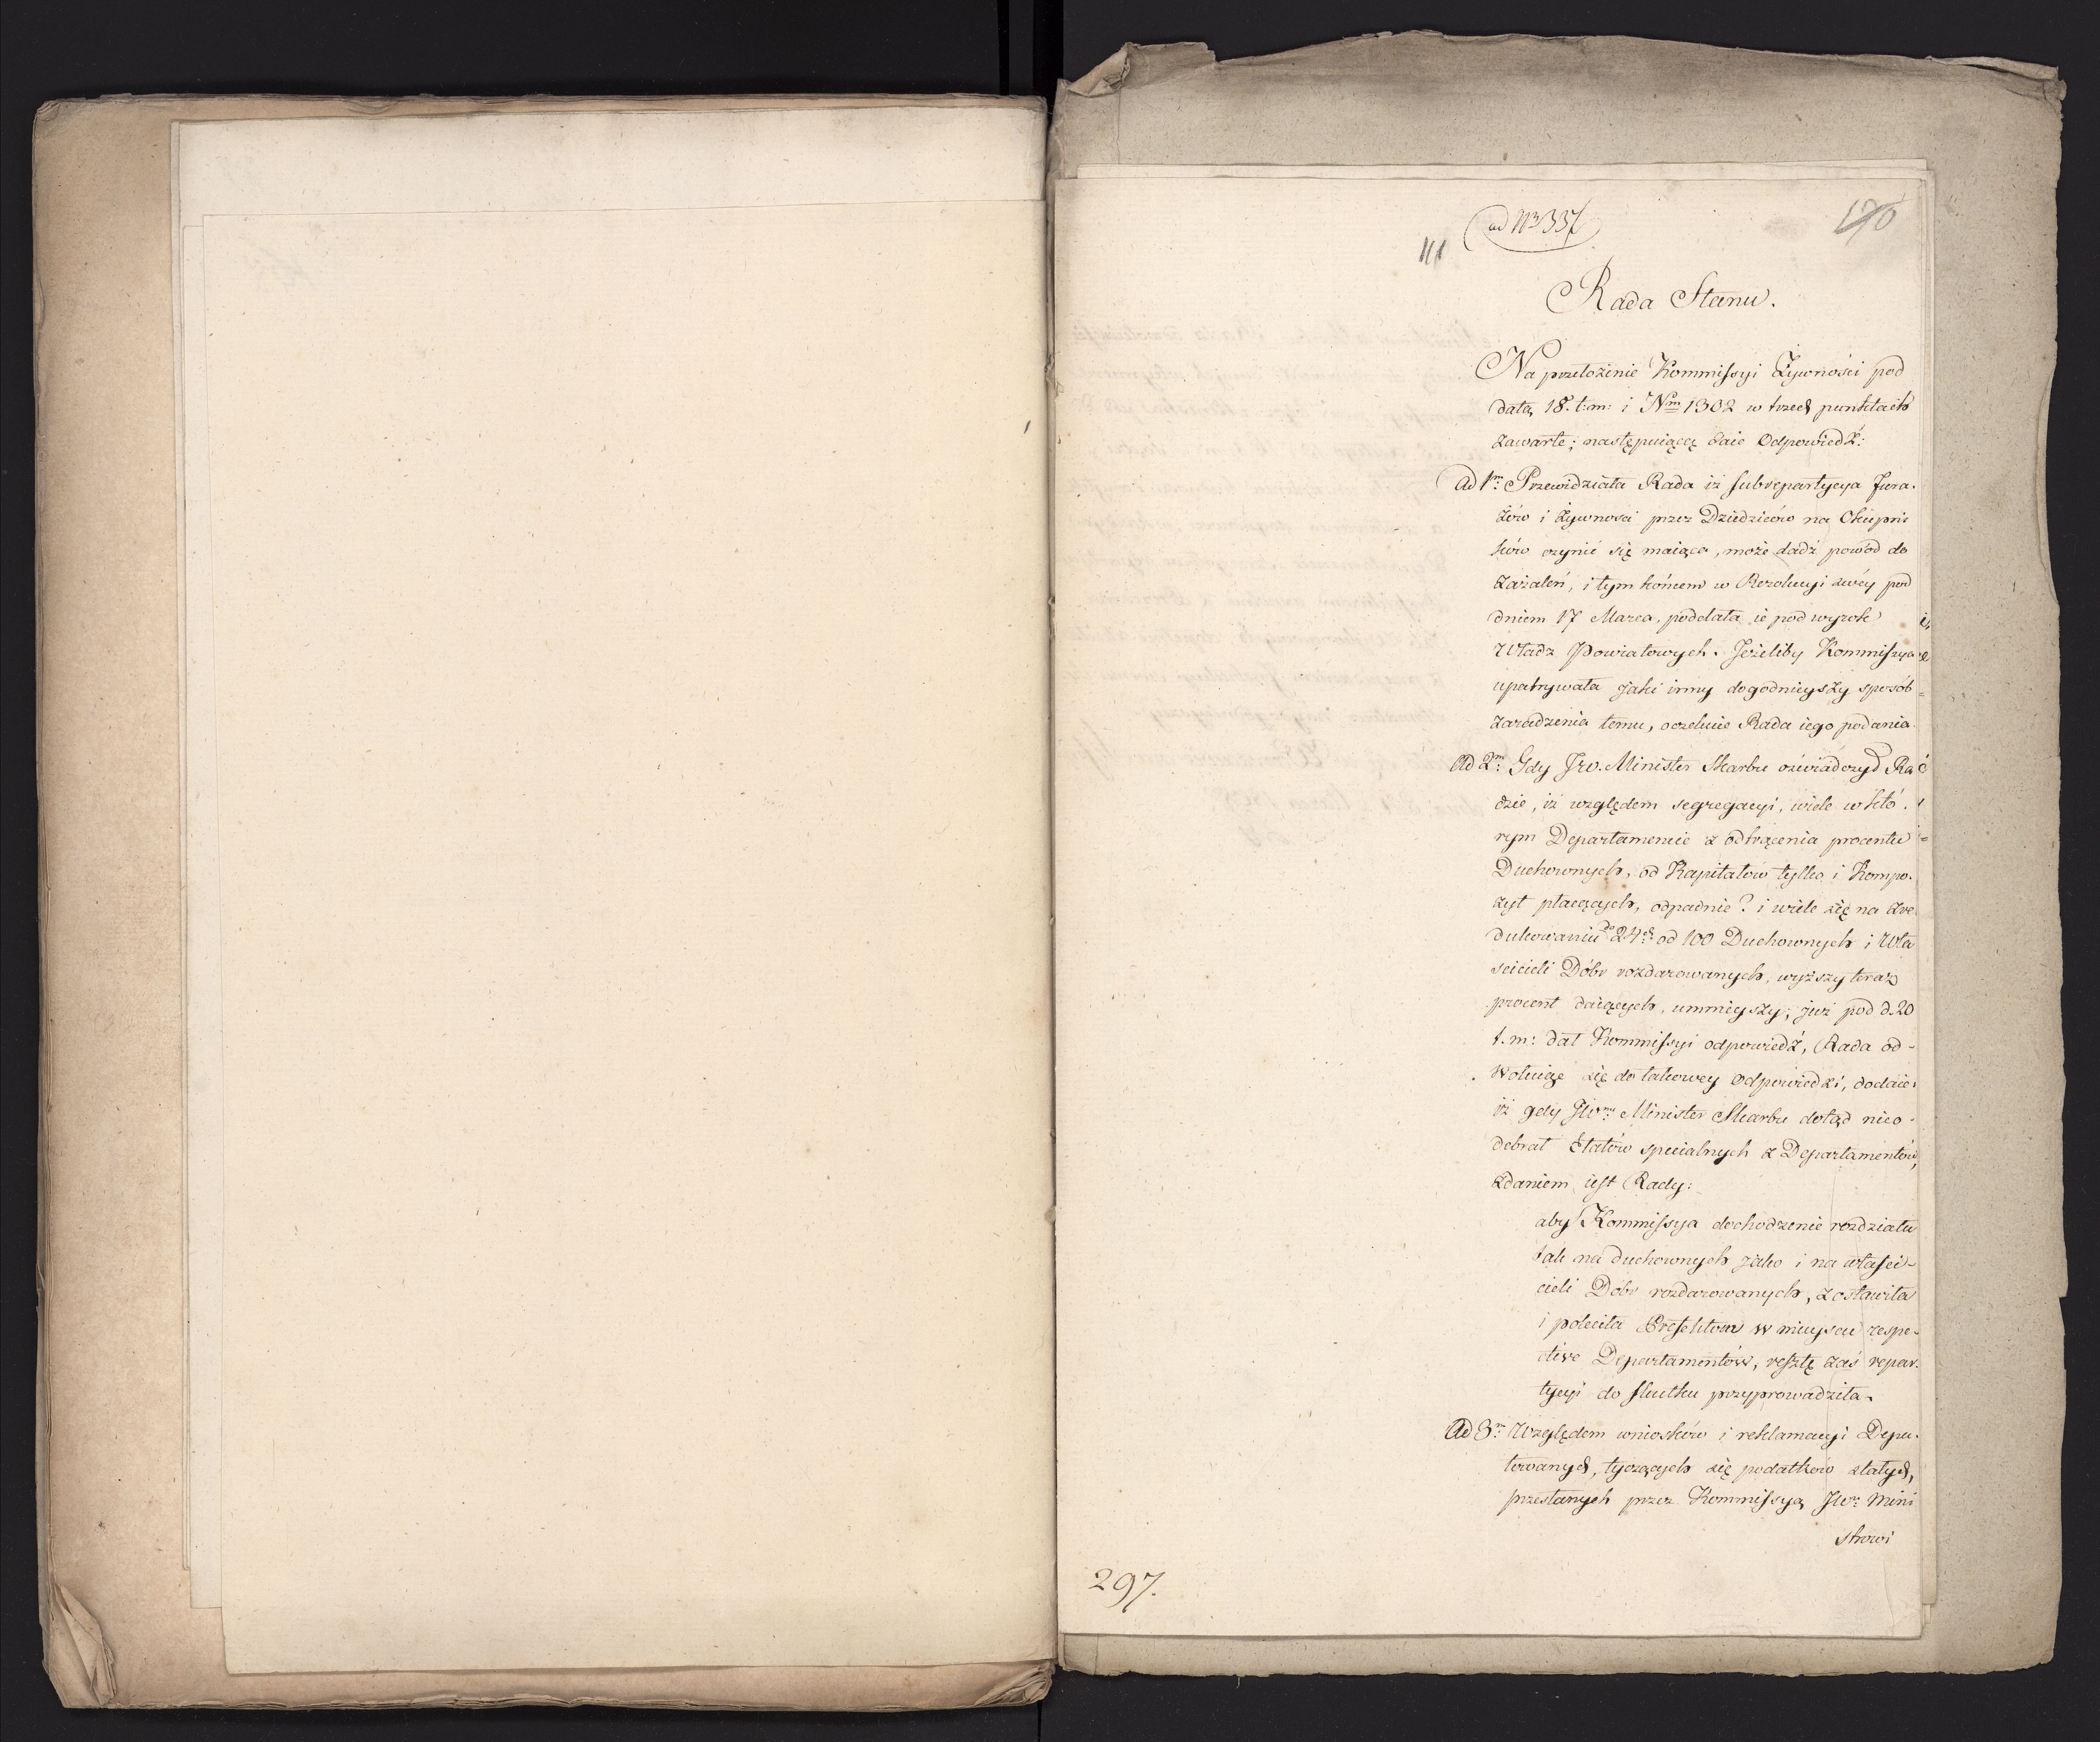 ad Nro 337
111
170
Rada Stanu.
Na przełożenie Kommissyi Żywności pod
datą 18. t: m: i Nm 1302 w trzech punktach
zawarte; następuiącę daie Odpowiedź:
Ad 1m: Przewidziała Rada iż subrepartycya Fura-
żów i żywności przez Dziedziców na Okupni
ków czynić się maiąca, może dadź powód do
zażaleń, i tym końcem w Rezolucyi swéy pod
dniem 17 Marca, poddała ie pod wyrok
Władz Powiatowych. Jeżeliby Kommissya
upatrywała jaki inny dogodnieyszy sposób
zaradzenia temu, oczekuie Rada iego podania.
Ad 2m: Gdy JW. Minister Skarbu oświadczył Ra
dzie, iż względem segregacyi, wiele w któ-
rym Departamencie z odtrącenia procentu
Duchownych, od Kapitałów tylko i Kompo-
zyt płacących, odpadnie? i wiele się na zre
dukowaniu do 24ch od 100 Duchownych i Wła
ścicieli Dóbr rozdarowanych, wyższy teraz
procent daiących, umnieyszy; już pod d. 20
t. m: dał Kommissyi odpowiedź, Rada od-
wołuiąc się do takowey Odpowiedzi, dodaie:
iż gdy JW. Minister Skarbu dotąd nieo-
debrał Etatów specialnych z Departamentów,
zdaniem iest Rady:
aby Kommissya dochodzenie rozdziału
tak na duchownych jako i na właści-
cieli Dóbr rozdarowanych, zostawiła
i poleciła Prefektom w mieyscu respe-
ctive Departamentów, resztę zaś repar-
tycyi do skutku przyprowadziła.
Ad 3m: Względem wniosków i reklamacyi Depu-
towanych, tyczących się podatków stałych,
przesłanych przez Kommissyą JW. Mini
strowi
297.